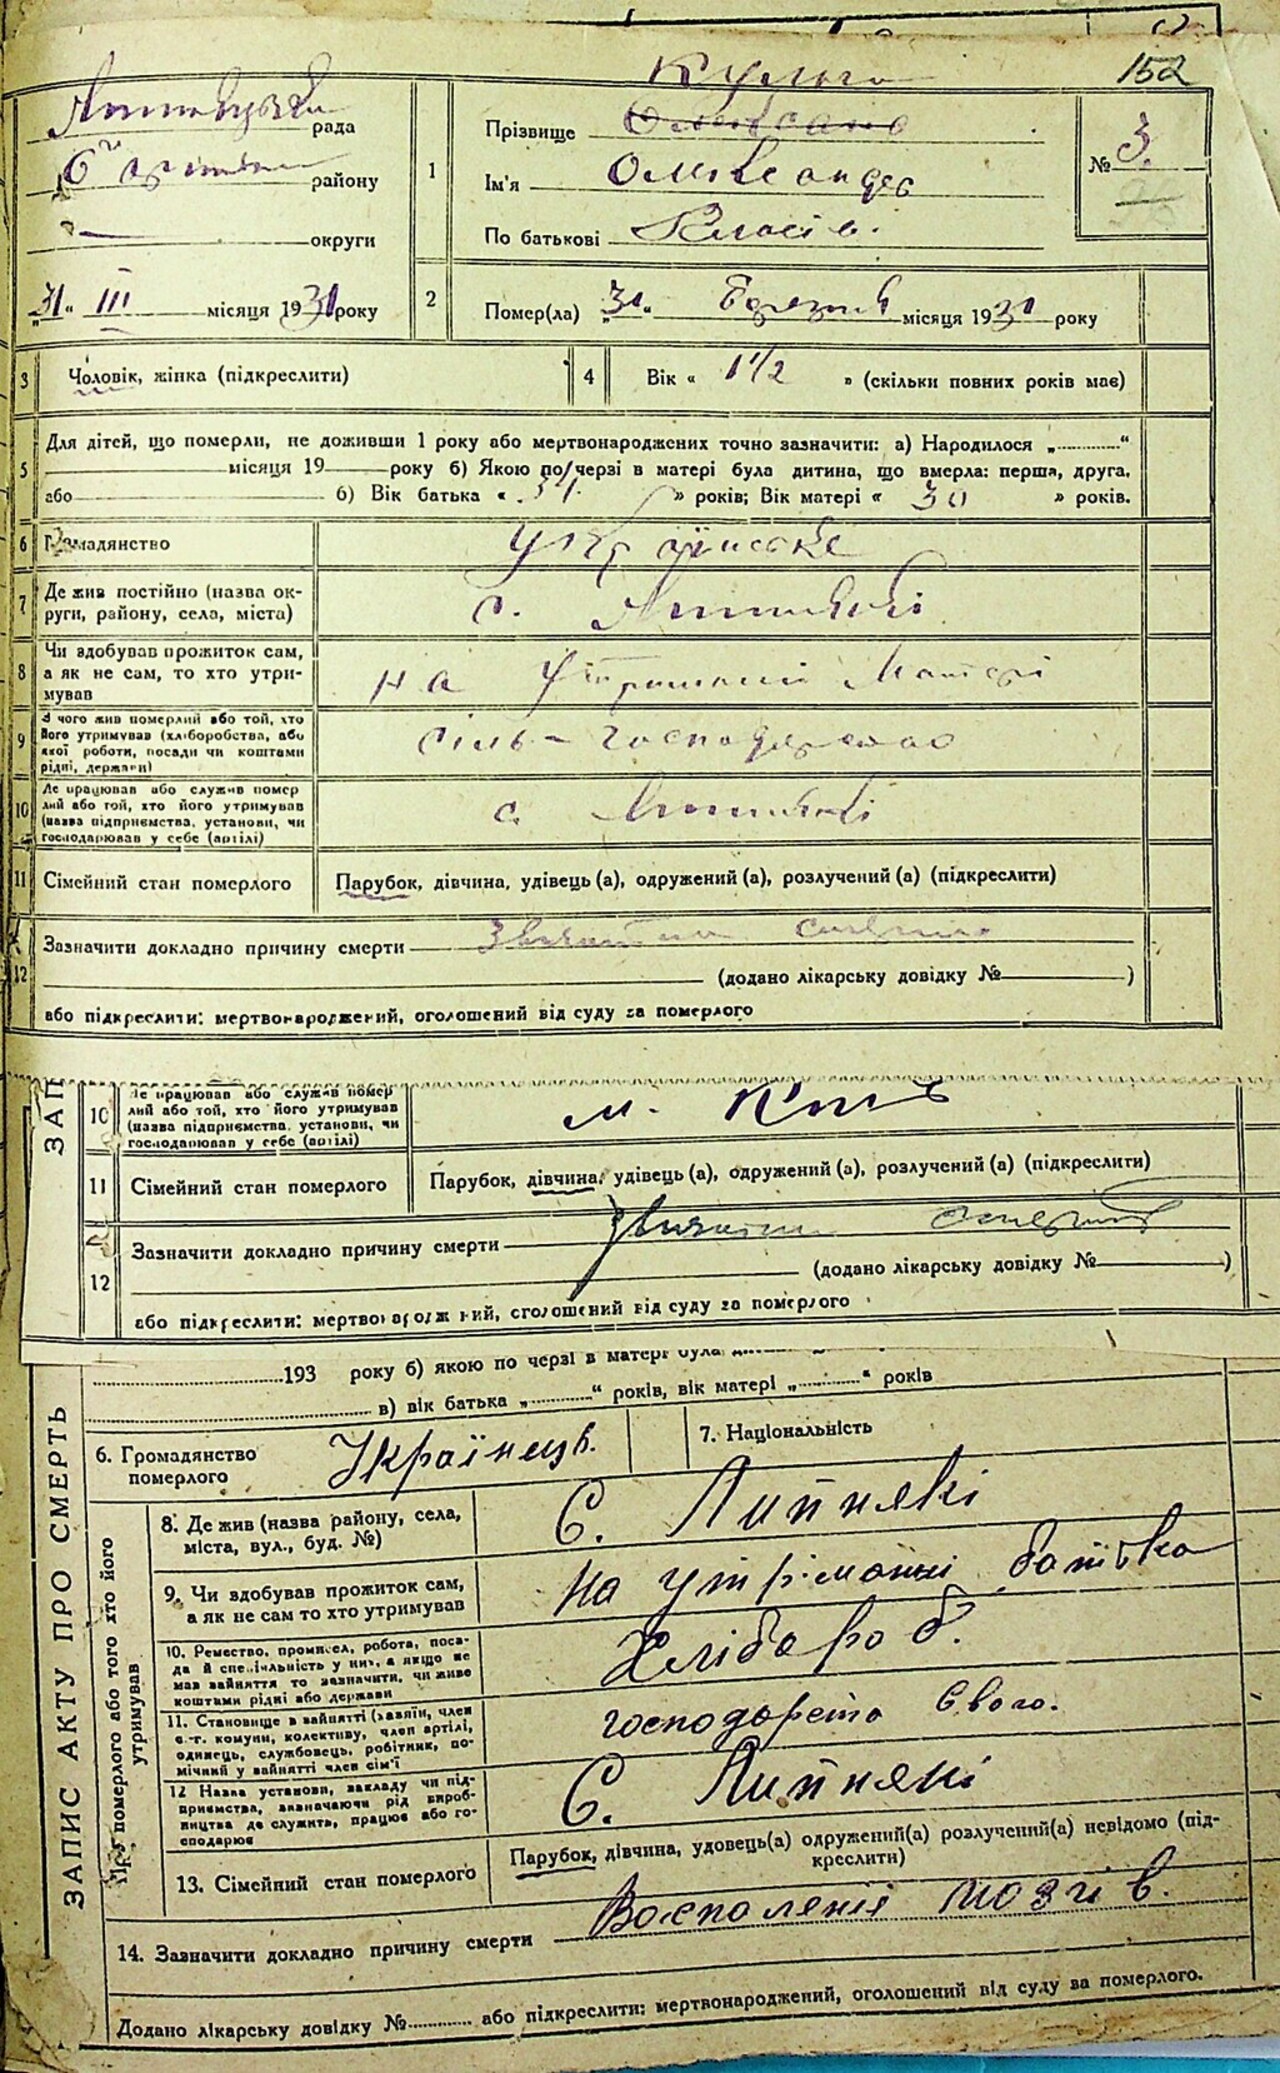 152
рада
району
округи
1
Прізвище
Ім'я Олександр
По батькові
№ 3.
„31“ III місяця 1931 року
2
Помер(ла) 31 “ березня місяця 1931 року
3
Чоловік, жінка (підкреслити)
4
Вік « 1 1/2 » (скільки повних років має)
5
Для дітей, що померли, не доживши 1 року або мертвонароджених точно зазначити: а) Народилося „............“
місяця 19 року б) Якою по черзі в матері була дитина, що вмерла: перша, друга,
або б) Вік батька « 31. » років; Вік матері « 30 » років.
6
Громадянство
українське
7
Де жив постійно (назва ок-
руги, району, села, міста)
с. Липнякі
8
Чи здобував прожиток сам,
а як не сам, то хто утри-
мував
на утриманні Матері
9
З чого жив померлий або той, хто
його утримував (хліборобства, або
якої роботи, посади чи коштами
рідні, держави)
сіль-господарство
10
Де працював або служив помер
лий або той, хто його утримував
(назва підприємства, установи, чи
господарював у себе (артілі)
с. Липнякі
11
Сімейний стан померлого
Парубок, дівчина, удівець (а), одружений (а), розлучений (а) (підкреслити)
12
Зазначити докладно причину смерти
(додано лікарську довідку № )
або підкреслити: мертвонароджений, оголошений від суду за померлого
ЗАП
10
Де працював або служив помер
лий або той, хто його утримував
(назва підприємства, установи, чи
господарював у себе (артілі)
м. Київ
11
Сімейний стан померлого
Парубок, дівчина, удівець (а), одружений (а), розлучений (а) (підкреслити)
12
Зазначити докладно причину смерти
(додано лікарську довідку № )
або підкреслити: мертвонароджений, оголошений від суду за померлого
ЗАПИС АКТУ ПРО СМЕРТЬ
193 року б) якою по черзі в матері була
в) вік батька „............“ років, вік матері „............“ років
6. Громадянство
померлого
Українець.
7. Національність
Про померлого або того хто його
утримував
8. Де жив (назва району, села,
міста, вул., буд. №)
с. Липнякі
9. Чи здобував прожиток сам,
а як не сам то хто утримував
на утріманні батька
10. Ремество, промисел, робота, поса-
да й спеціяльність у них, а якщо не
мав зайняття то зазначити, чи живе
коштами рідні або держави
Хлібороб.
11. Становище в зайнятті (хазяїн, член
с.-г. комуни, колективу, член артілі,
одинець, службовець, робітник, по-
мічний у зайнятті член сім'ї
господарстю свого.
12 Назва установи, закладу чи під-
приємства, зазначаючи рід вироб-
ництва де служить, працює або го-
сподарює
с. Липнякі
13. Сімейний стан померлого
Парубок, дівчина, удовець(а) одружений(а) розлучений(а) невідомо (під-
креслити)
14. Зазначити докладно причину смерти
Восполеніє мозгів.
Додано лікарську довідку №............ або підкреслити: мертвонароджений, оголошений від суду за померлого.